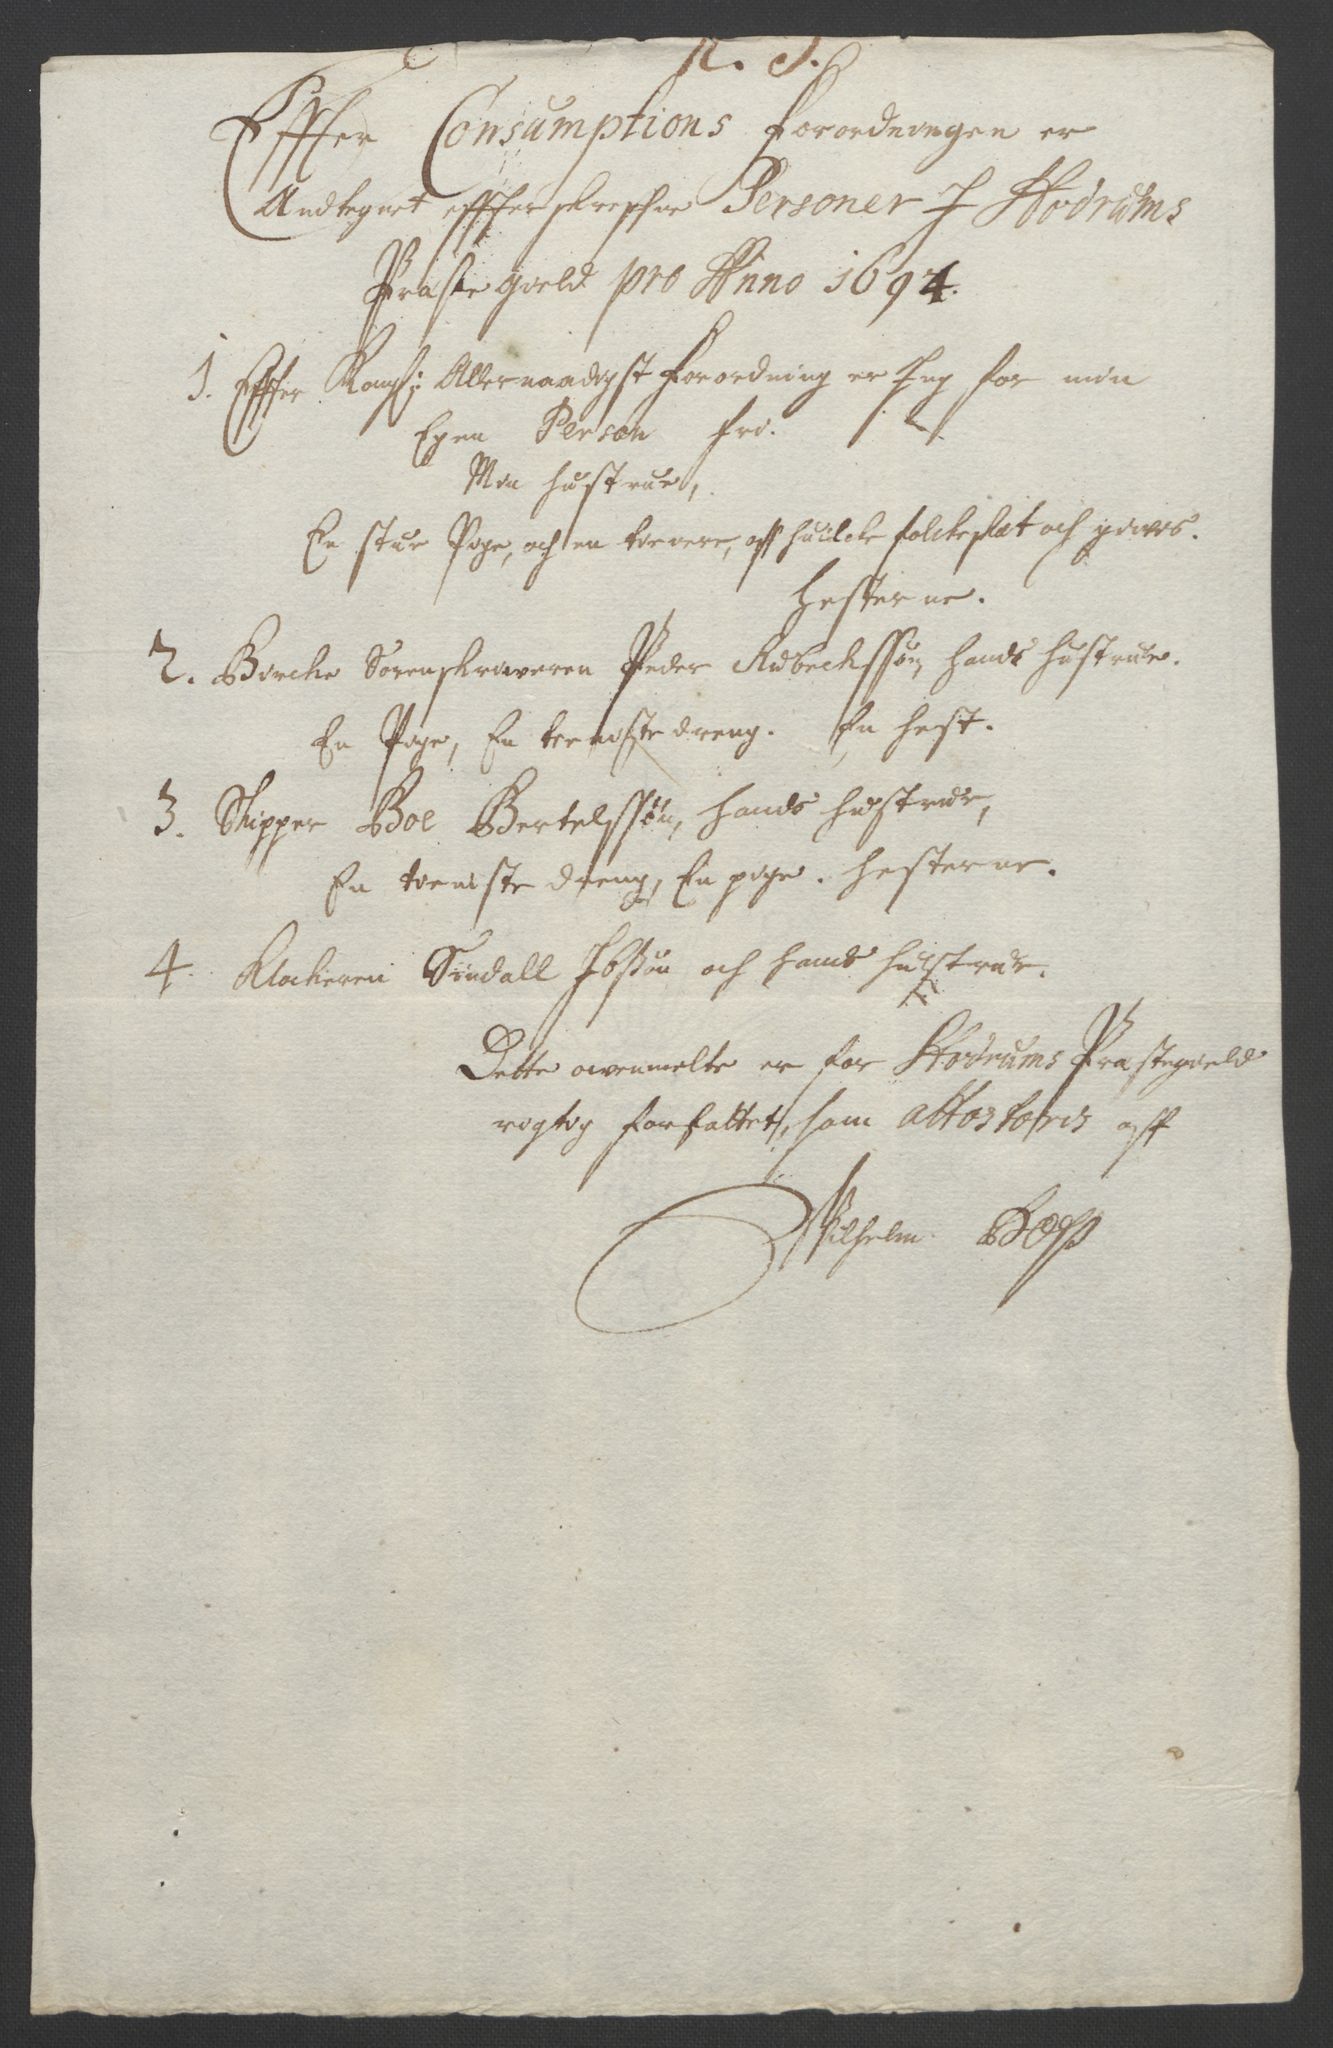 N. J.
Effter Consumptions forordningen er
Andtegnet effterskreffne Personer I Hodrums
Præste gield pro Anno 1694.
1. Effter Kongl: Allernaadigst forordning er Jeg for min
Egen Person fri.
Min hustrue,
En stue Pige, och en tienere, aff huilcke folcke skat och gives.
hesterne.
2. Bircke Sorenskriveren Peder Rubeckssøn, hands hustrue.
En Pige, En tieniste dreng. En hest.
3. Skipper Boe Bertelssøn, hands hustrue,
En tieniste dreng, En pige. hesterne.
4. Klockeren Sindall Ibsøn och hands hustrue.
Dette ovenmelte er for Hodrums Præstegield
rigtig forfattet, som attesteris aff
Wilhelm